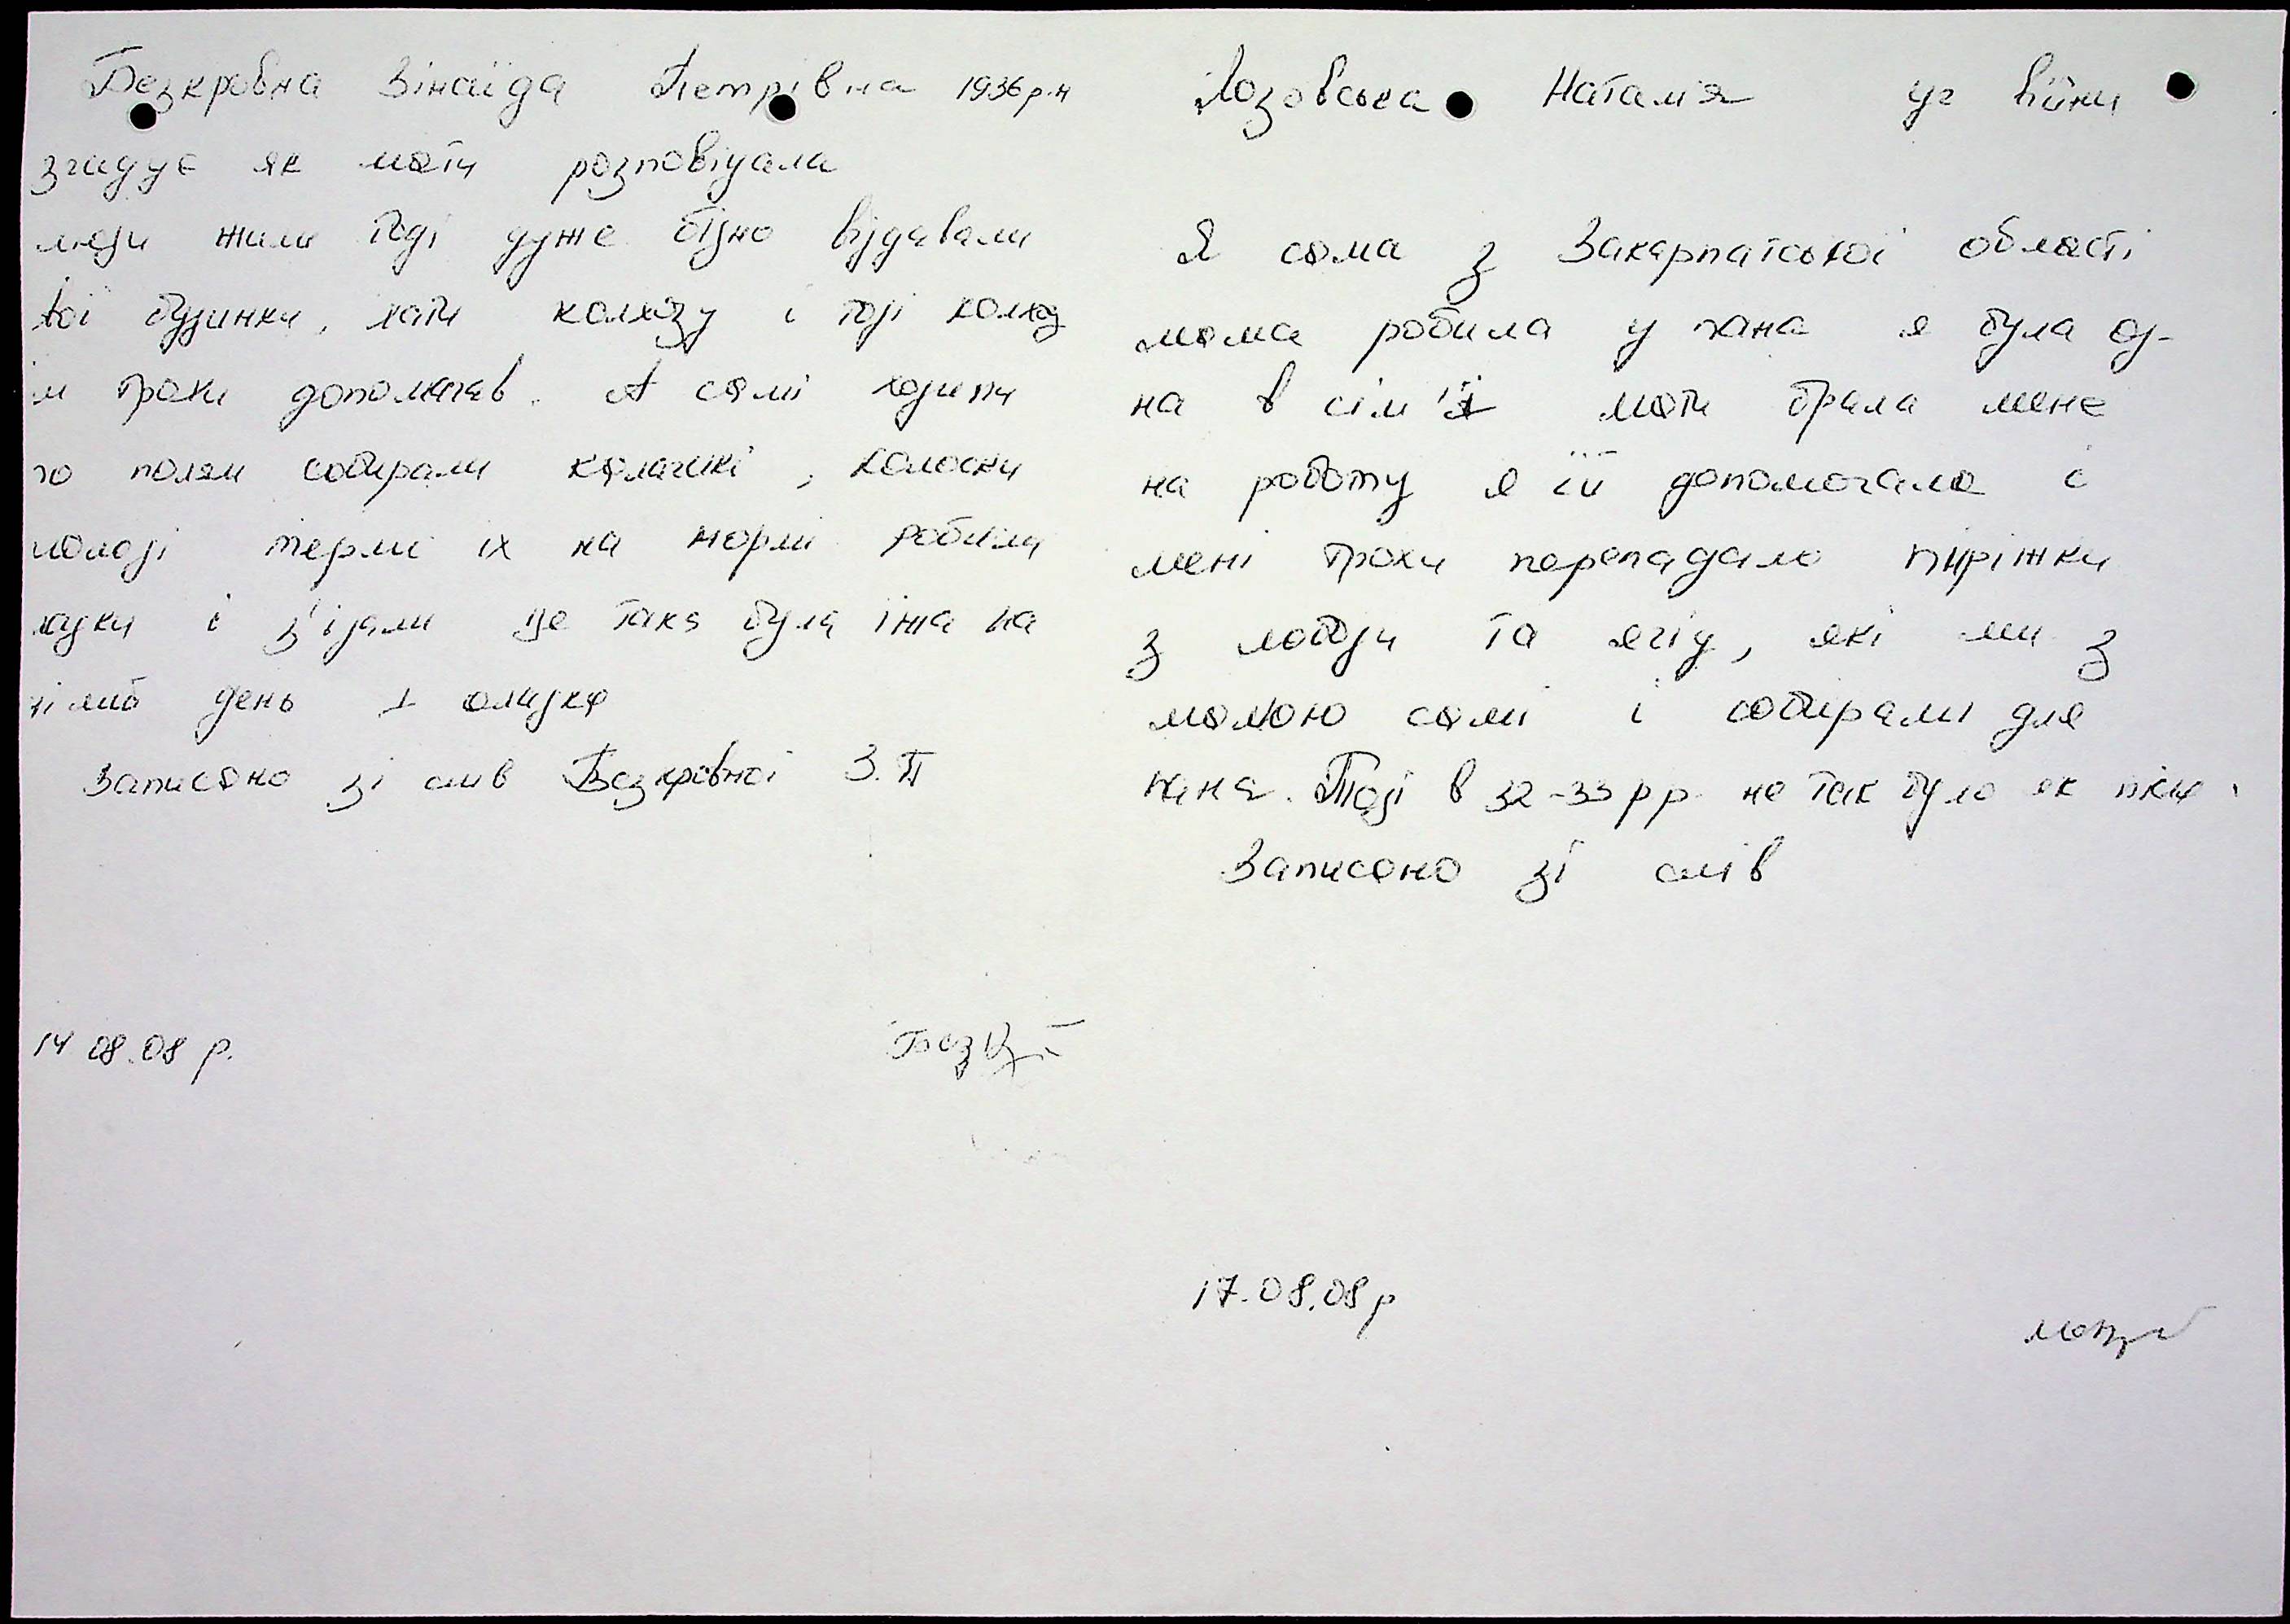 Безкровна Зінаїда Петрівна 1936 р.н
згадує як мати розповідали
люди жили тоді дуже бідно віддавали
вої будинки, хати колхозу і тоді колхоз
їм трохи допомагав. А самі ходили
по полям собирали калачикі, колоски
молоді терли їх на жорні робили
ладки і з'їдали це така була їжа на
цілий день 1 оладка
Записано зі слів Безкровної З.П
14 08.08 р.
Лозовська Наталія уч війни
Я сама з Закарпатської області
мама робила у пана я була од-
на в сім'ї мати брала мене
на роботу я їй допомогала і
мені трохи перепадало пиріжки
з лободи та ягід, які ми з
мамою самі і собирали для
пана. Тоді в 32-33 рр не так було як
Записано зі слів
17.08.08 р